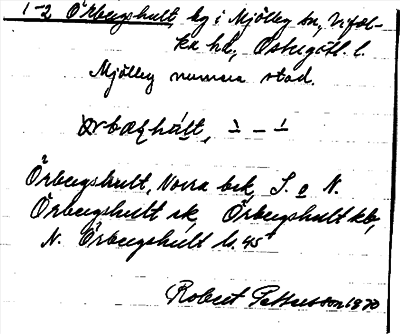 1-2 Örbergshult, bg i Mjölby sn, Vifol-
ka hd, Östergötl. l.
Mjölby numera stad.
Örbergshult, Norra bsk, S. o N.
Örbergshult sk, Örbergshult kb,
N. Örbergshult h. 45
Robert Pettersson 1970